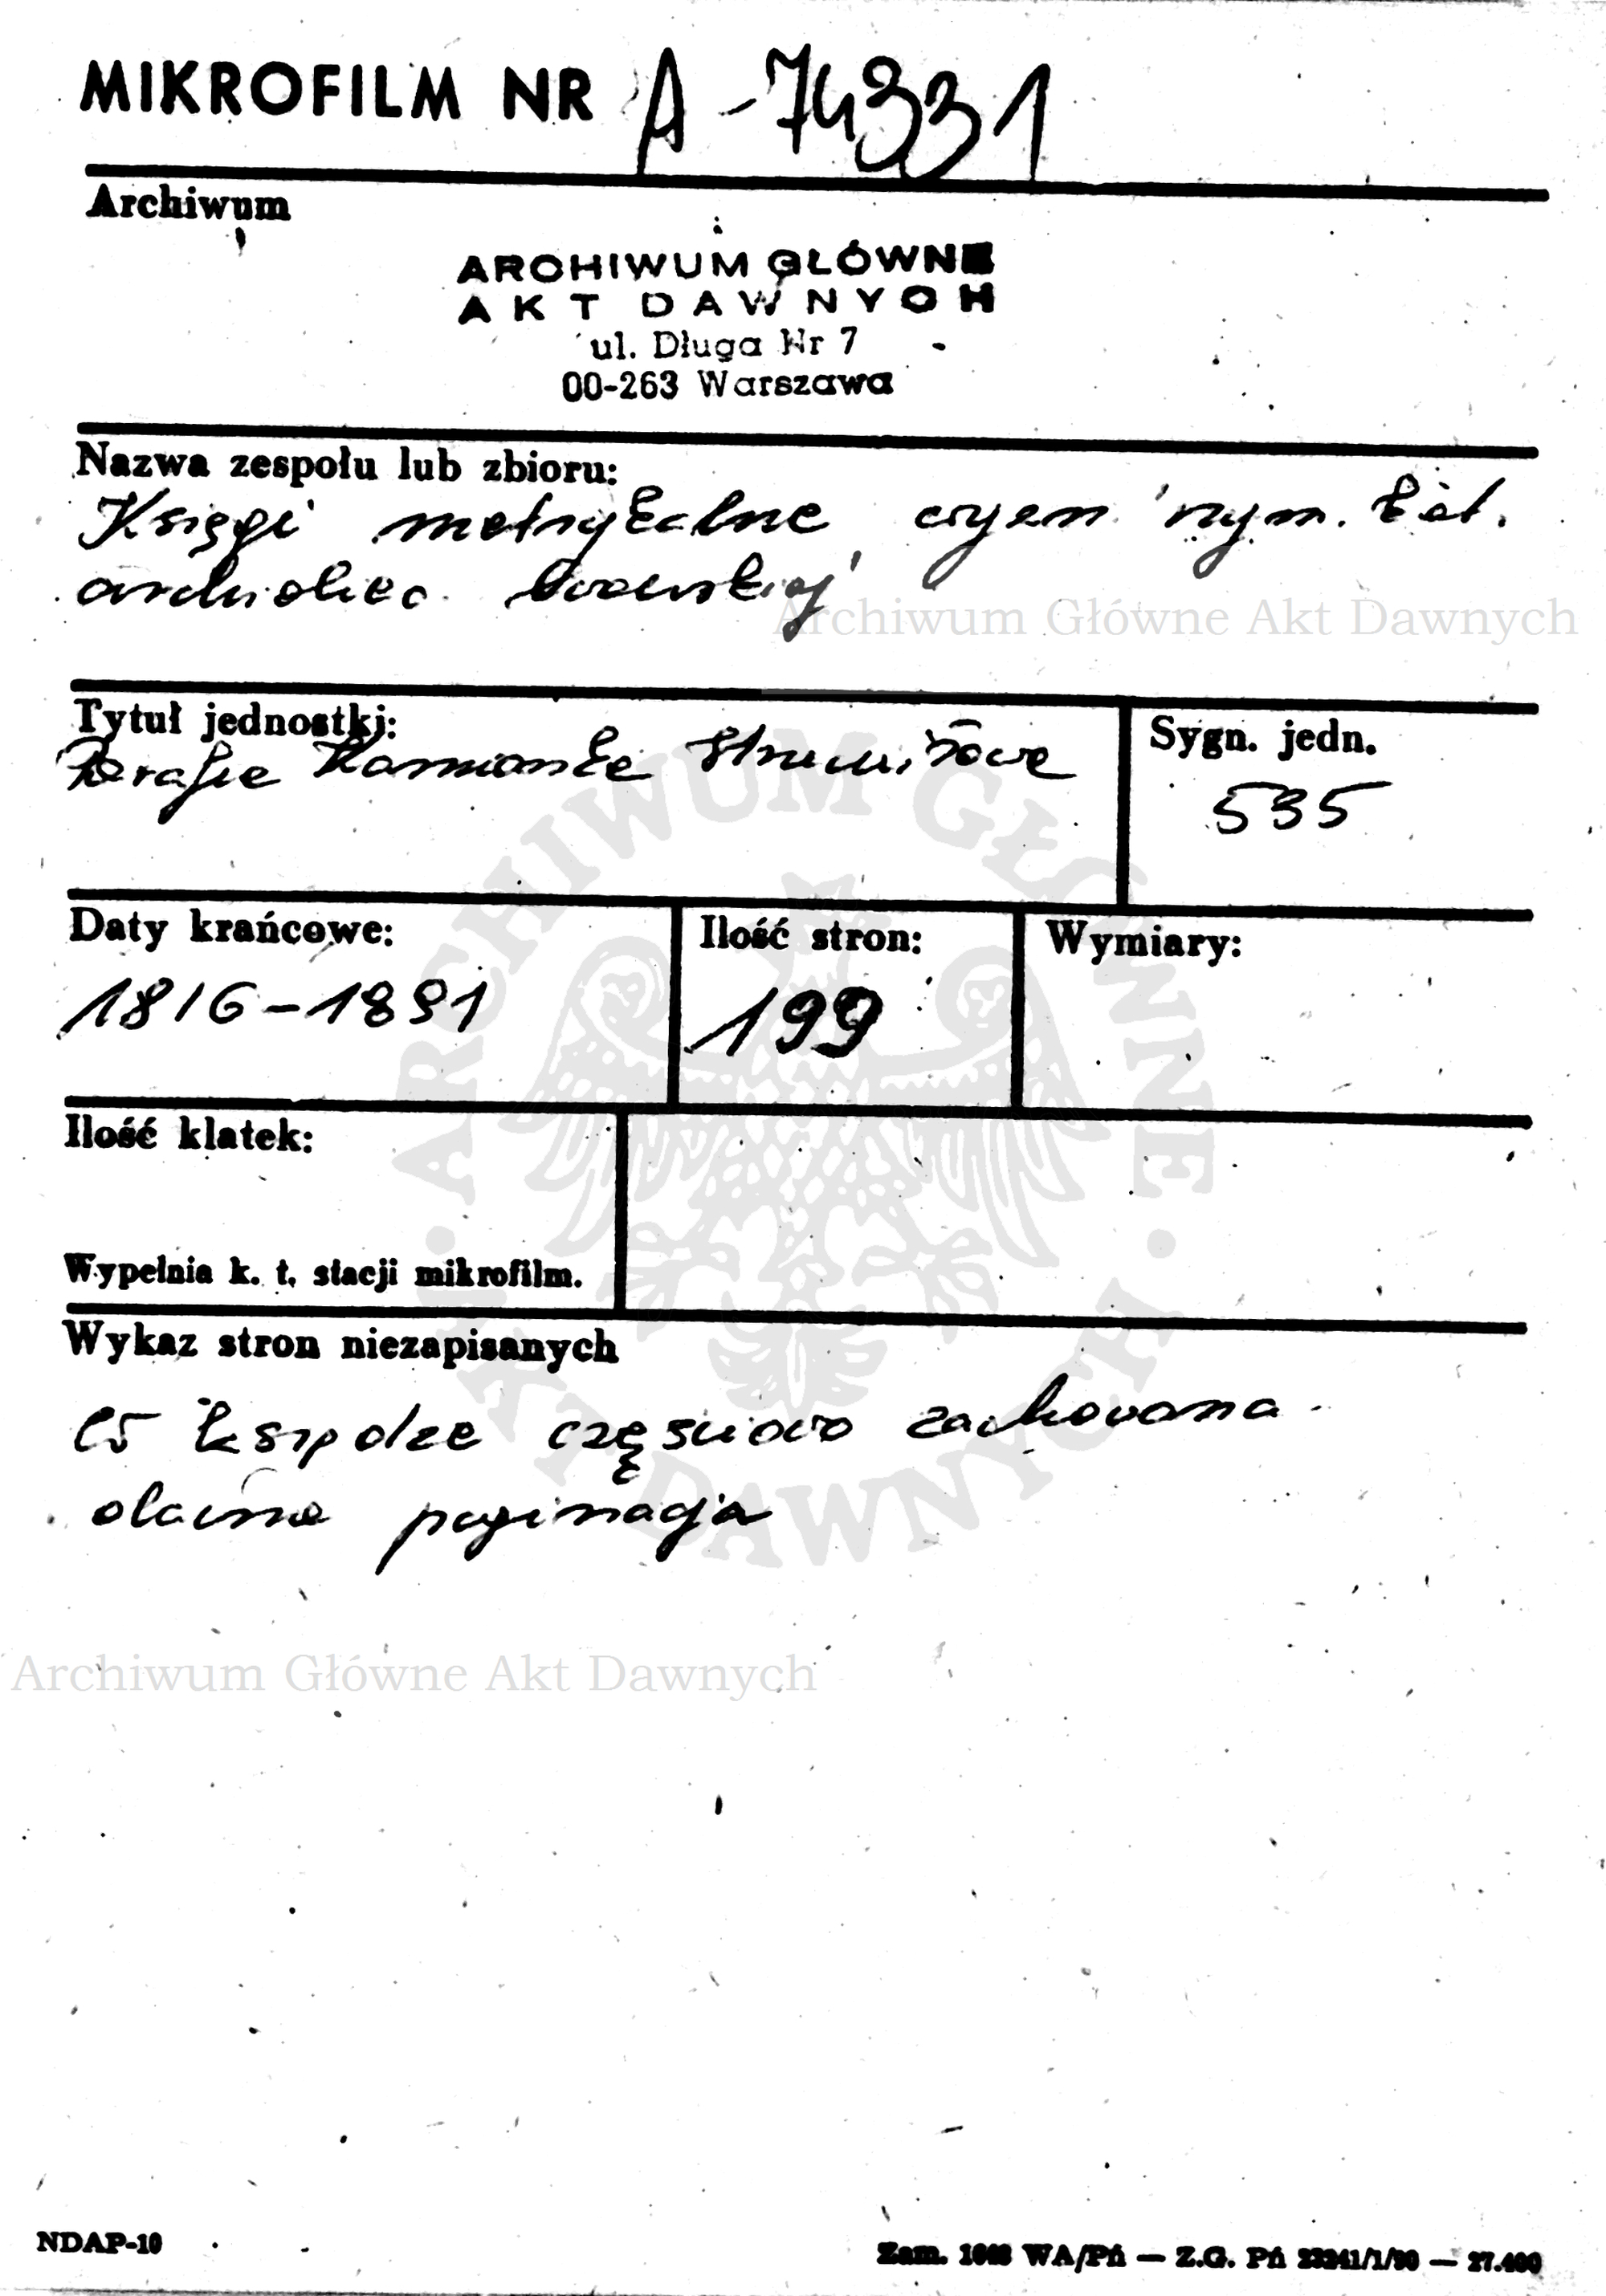 MIKROFILM NR A-74331
Archiwum
ARCHIWUM GŁÓWNE
AKT DAWNYCH
ul. Długa Nr 7
00-263 Warszawa
Nazwa zespołu lub zbioru:
Księgi metrykalne wyzn. rzym. kat.
archidiec. lwowskiej
Archiwum Główne Akt Dawnych
Tytuł jednostki:
Parafia Kamionka Strumiłowa
Sygn. jedn.
535
Daty krańcowe:
1816-1891
Ilość stron:
199
Wymiary:
Ilość klatek:
Wypełnia k. t. stacji mikrofilm.
Wykaz stron niezapisanych
W księdze częściowo zachowana
dawna paginacja
ARCHIWUM GŁÓWNE AKT DAWNYCH
Archiwum Główne Akt Dawnych
NDAP-10
Zam. WA/Pń — Z.G. Pń — 27.400